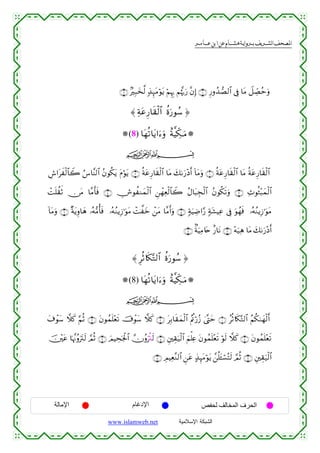 المصحف الشريف برواية هشام عن ابن عامر
وَحُصِّلَ مَا فِي ٱلصُّدُورِ ۝ إِنَّ رَبَّهُم بِهِمْ يَوْمَئِذٍ لَّخَبِيرٌ ۝
﴿ سُورَةُ ٱلْقَارِعَةِ ﴾
* مَكِّيَّةٌ وَءَايَاتُهَا (8) *
بِسْمِ ٱللَّهِ ٱلرَّحْمَٰنِ ٱلرَّحِيمِ
ٱلْقَارِعَةُ مَا ٱلْقَارِعَةُ ۝ وَمَآ أَدْرَىٰكَ مَا ٱلْقَارِعَةُ ۝ يَوْمَ يَكُونُ ٱلنَّاسُ كَٱلْفَرَاشِ
ٱلْمَبْثُوثِ ۝ وَتَكُونُ ٱلْجِبَالُ كَٱلْعِهْنِ ٱلْمَنفُوشِ ۝ فَأَمَّا مَن ثَقُلَتْ
مَوَٰزِينُهُۥ ۝ فَهُوَ فِي عِيشَةٍ رَّاضِيَةٍ ۝ وَأَمَّا مَنْ خَفَّتْ مَوَٰزِينُهُۥ ۝ فَأُمُّهُۥ هَاوِيَةٌ ۝ وَمَآ
أَدْرَىٰكَ مَا هِيَهْ ۝ نَارٌ حَامِيَةٌ ۝
﴿ سُورَةُ ٱلتَّكَاثُرِ ﴾
* مَكِّيَّةٌ وَءَايَاتُهَا (8) *
بِسْمِ ٱللَّهِ ٱلرَّحْمَٰنِ ٱلرَّحِيمِ
أَلْهَىٰكُمُ ٱلتَّكَاثُرُ ۝ حَتَّىٰ زُرْتُمُ ٱلْمَقَابِرَ ۝ كَلَّا سَوْفَ تَعْلَمُونَ ۝ ثُمَّ كَلَّا سَوْفَ
تَعْلَمُونَ ۝ كَلَّا لَوْ تَعْلَمُونَ عِلْمَ ٱلْيَقِينِ ۝ لَتُرَوُنَّ ٱلْجَحِيمَ ۝ ثُمَّ لَتَرَوُنَّهَا عَيْنَ
ٱلْيَقِينِ ۝ ثُمَّ لَتُسْـَٔلُنَّ يَوْمَئِذٍ عَنِ ٱلنَّعِيمِ ۝
الحرف المخالف لحفص الإدغام الإمالة
الشبكة الإسلامية www.islamweb.net